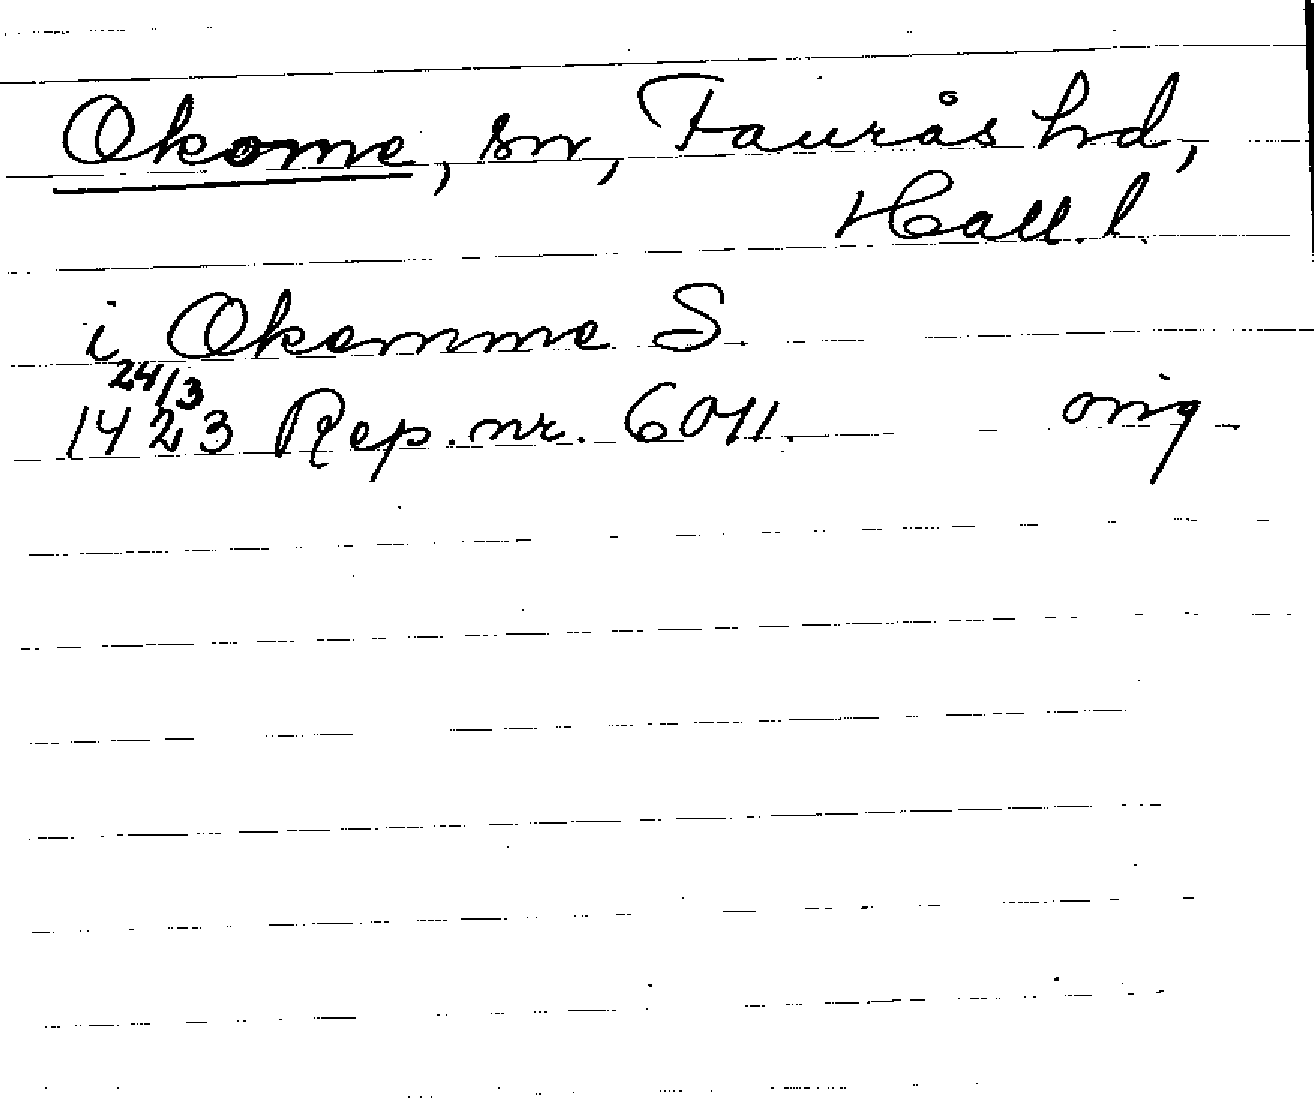 Okome, sn, Faurås hd,
Hall. l.
i Okomme S.
24/3
1423 Rep. nr. 6011. orig.